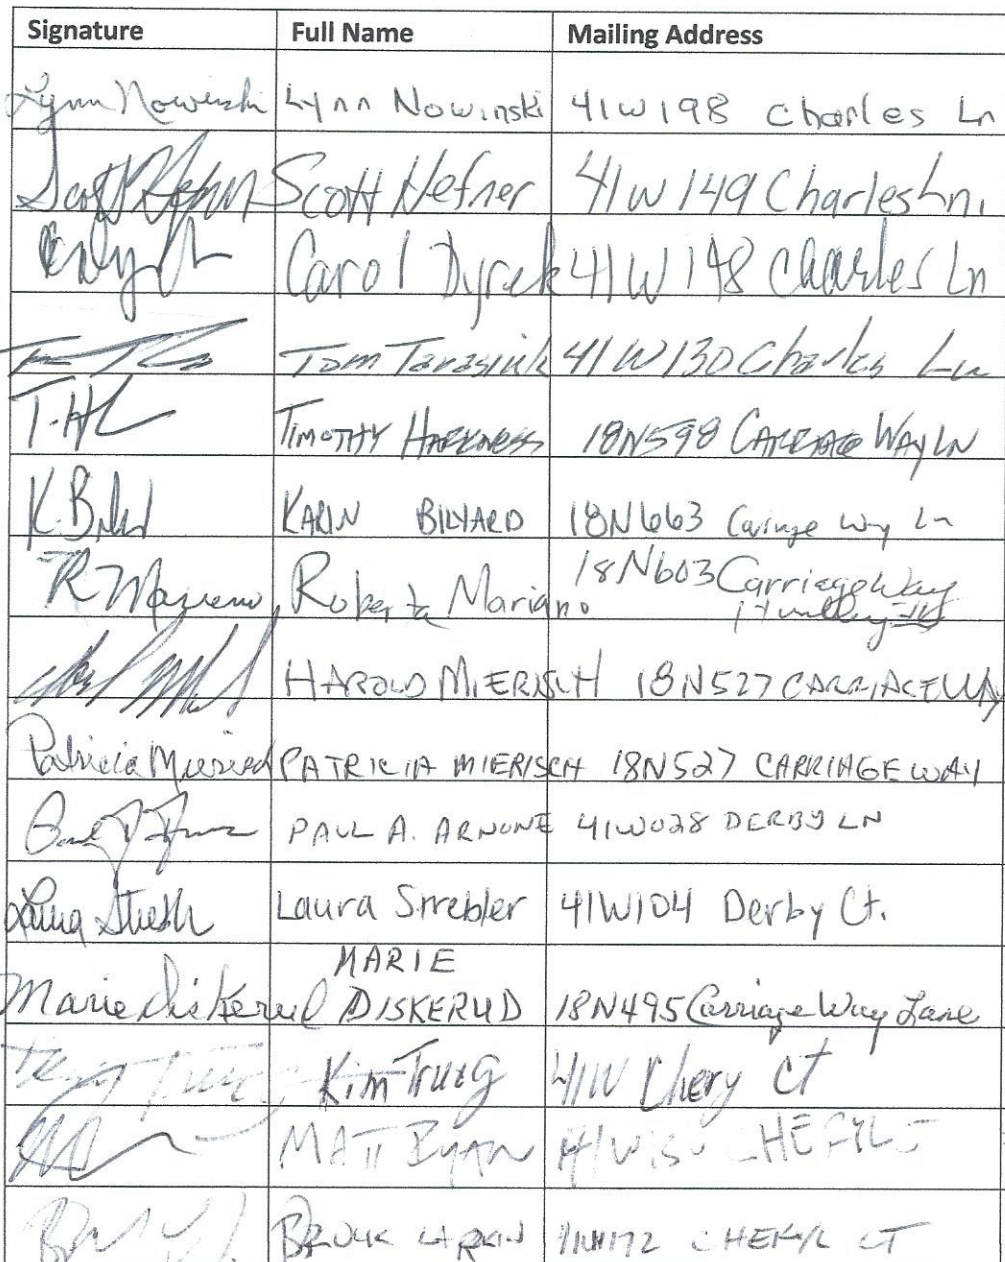 Signature Full Name Mailing Address
Lynn Nowinski Lynn Nowinski 41W198 Charles Ln
Scott Hefner Scott Hefner 41W149 Charles Ln.
Carol Dyrek 41W148 Charles Ln
Tom Tarasiuk 41W130 Charles Ln
TIMOTHY HARKNESS 18N598 CARRIAGE WAY LN
K. KARIN BILYARD 18N663 Carriage Way Ln
R Mariano Roberta Mariano 18N603 Carriage Way
Huntley
HAROLD MIERISCH 18N527 CARRIAGE WAY
Patricia Mierisch PATRICIA MIERISCH 18N527 CARRIAGE WAY
PAUL A. ARNONE 41W028 DERBY LN
Laura Strebler 41W104 Derby Ct.
MARIE
Marie Diskerud DISKERUD 18N495 Carriage Way Lane
Kim 41W Chery Ct
MATT RYAN
LARKIN CT